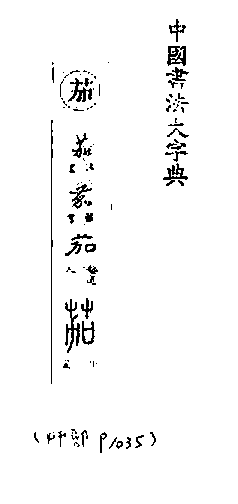 中國書法大字典
茄
茄
茄
茄
茄
(艸部 P1035)